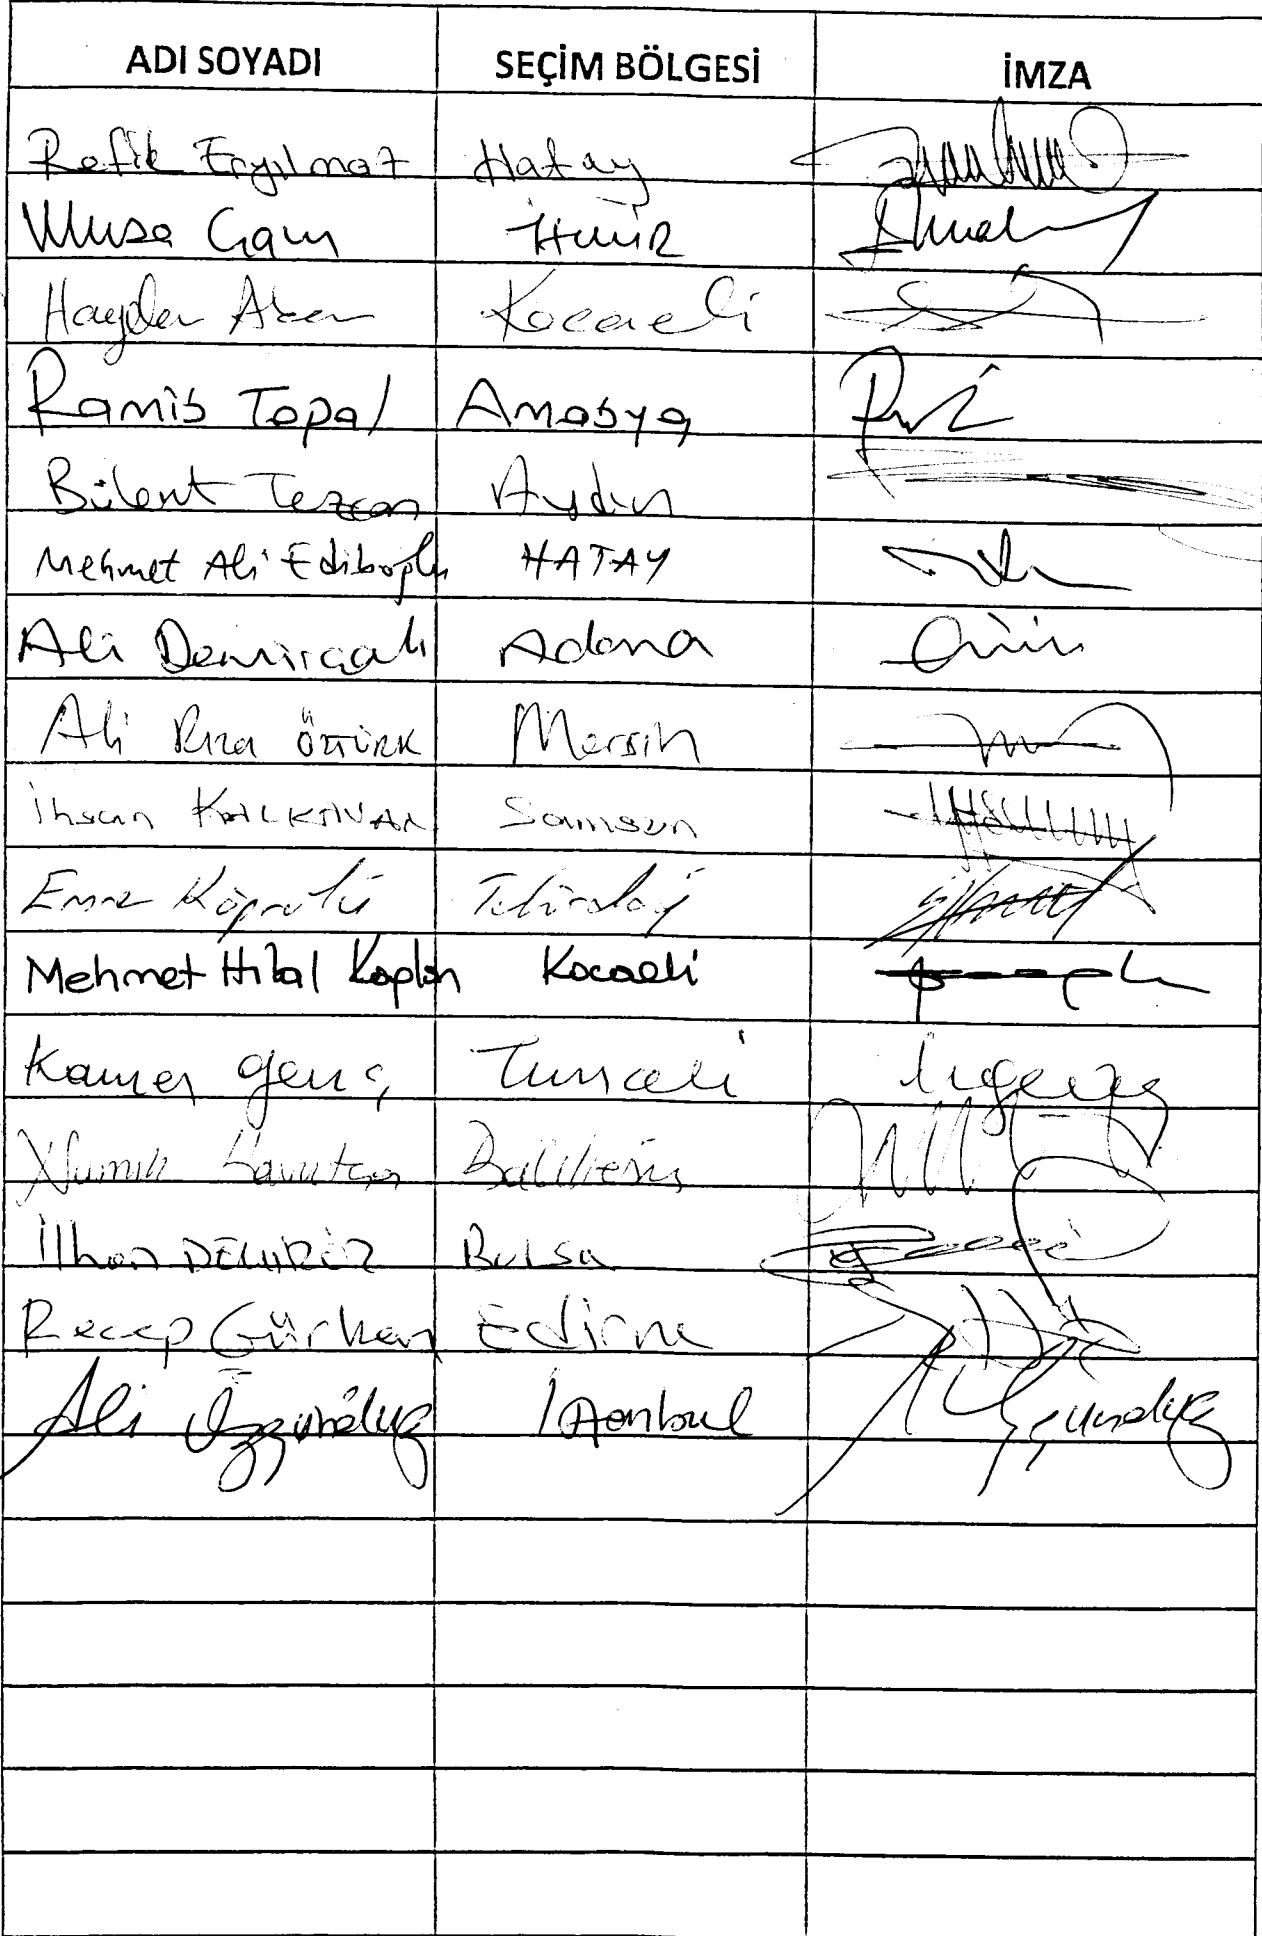 ADI SOYADI SEÇİM BÖLGESİ İMZA
Refik Eryılmaz Hatay
Musa Çam İzmir
Haydar Akar Kocaeli
Ramis Topal Amasya
Bülent Tezcan Aydın
Mehmet Ali Ediboğlu HATAY
Ali Demirçalı Adana
Ali Rıza ÖZTÜRK Mersin
İhsan KALKAVAN Samsun
Emre Köprülü Tekirdağ
Mehmet Hilal Kaplan Kocaeli
Kamer Genç Tunceli
Namık Havutça Balıkesir
İlhan DEMİRÖZ Bursa
Recep Gürkan Edirne
Ali Özgündüz İstanbul